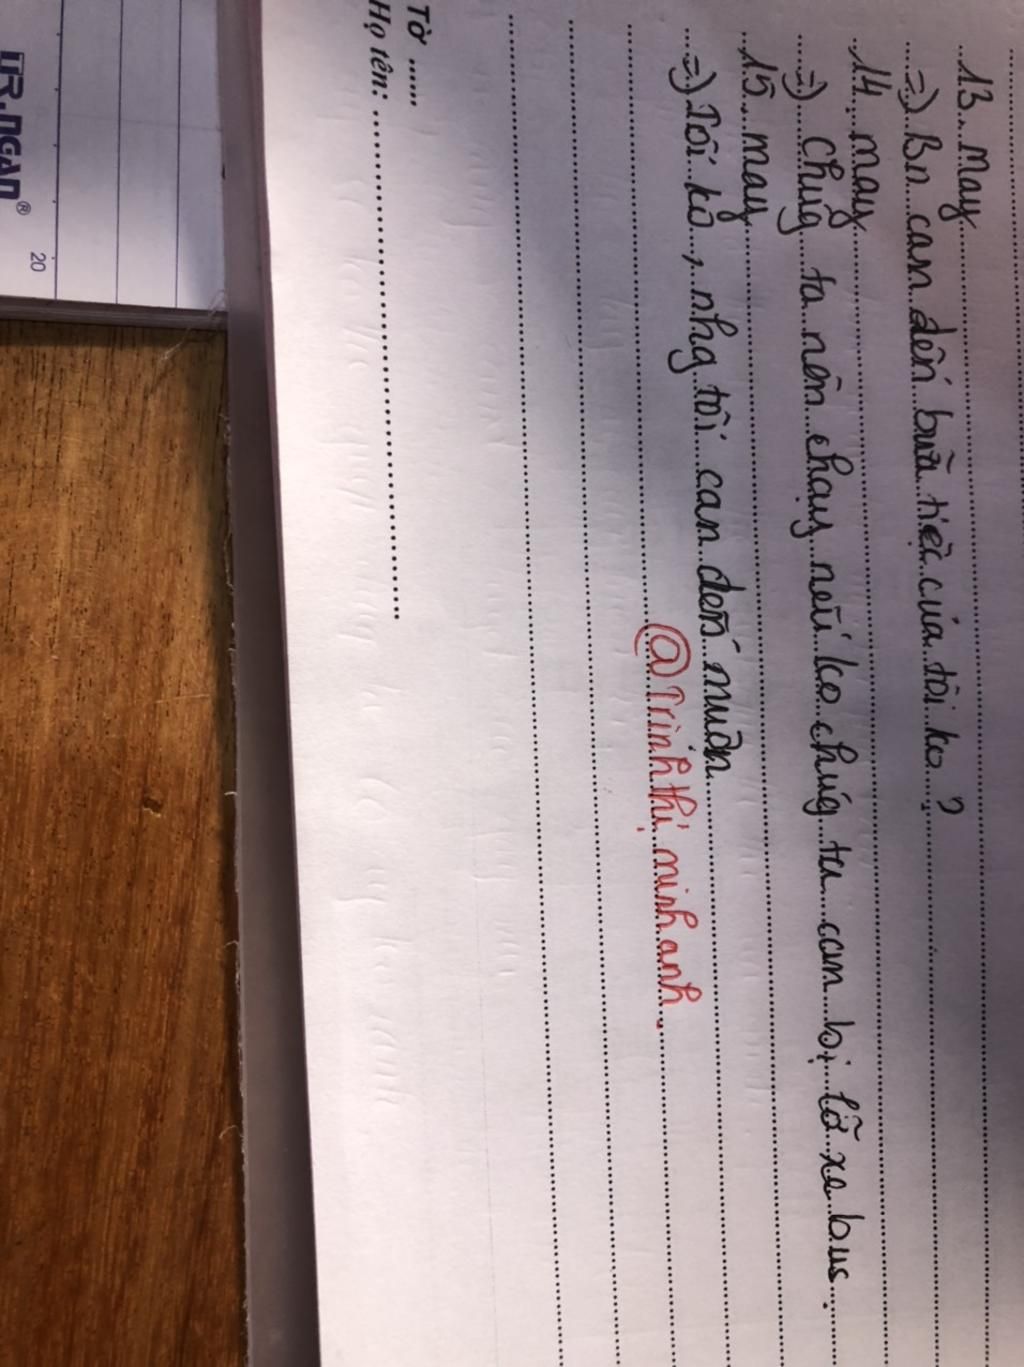 13. may
=) Bn can đến buổi tiệc của tôi ko?
14. may
=) Chúg ta nên chạy nếu ko chúg ta can bị lỡ xe bus.
15. may
=) Tôi ko, nhg tôi can đến muộn
@Trịnh thị minh anh.
Tờ ......
Họ tên:
TR.NGAN®
20